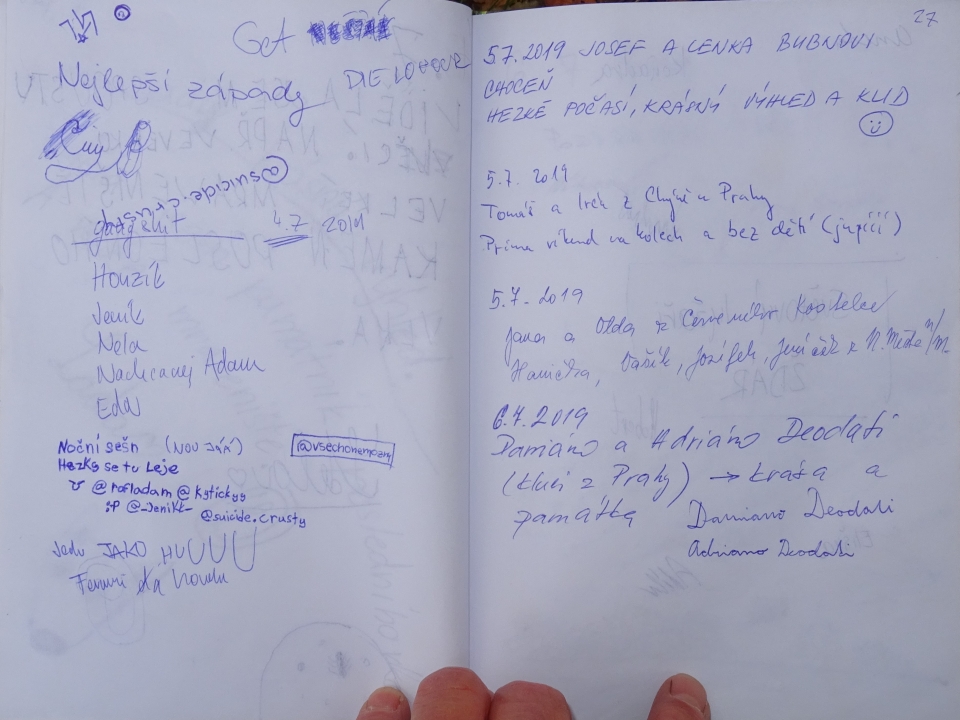 GCA
Nejlepší západy
DIE LOVOUR
@suicide.crusty
4.7 2019
Honzík
Jeník
Nela
Nadrcanej Adam
Eda
Noční sešn (NOU JNÁ)
Hezky se tu Leje
@rafladam @kytickyy
:P @-Jenikk-
@suicide.crusty
@vsechonemozny
Jedu JAKO HUUUU
Ferrari da
27
5.7.2019 JOSEF A LENKA BUBNOVY
CHOCEŇ
HEZKÉ POČASÍ, KRÁSNÝ VÝHLED A KLID
5.7. 2019
Tomáš a Irek z Chýně u Prahy
Príma víkend na kolech a bez dětí (jupííí)
5.7.2019
Jana a Olda z Červeného Kostelce
Hanička, Vašík, Jozífek, Jeníček z N. Města n/M.
6.7.2019
Damiáno a Adriáno Deodati
(kluci z Prahy) → krása a
památka
Damiano Deodati
Adriano Deodati